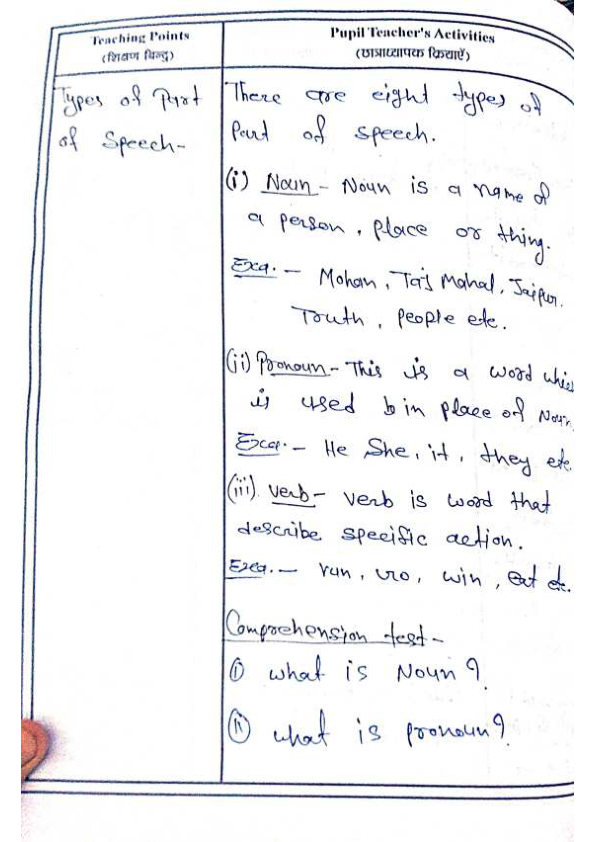 Teaching Points
(शिक्षण बिन्दु)
Pupil Teacher's Activities
(छात्राध्यापक क्रियाएँ)
Types of Part
of Speech-
There are eight types of
Part of speech.
(i) Noun - Noun is a name of
a person, place or thing.
Exa. - Mohan, Taj Mahal, Jaipur.
Truth, people etc.
(ii) Pronoun - This is a word whic
is used b in place of Noun
Exa. - He She, it, they etc.
(iii). verb - verb is word that
describe specific action.
Exa. - run, go, win, eat etc.
Comprehension test-
(i) what is Noun?
(ii) what is pronoun?